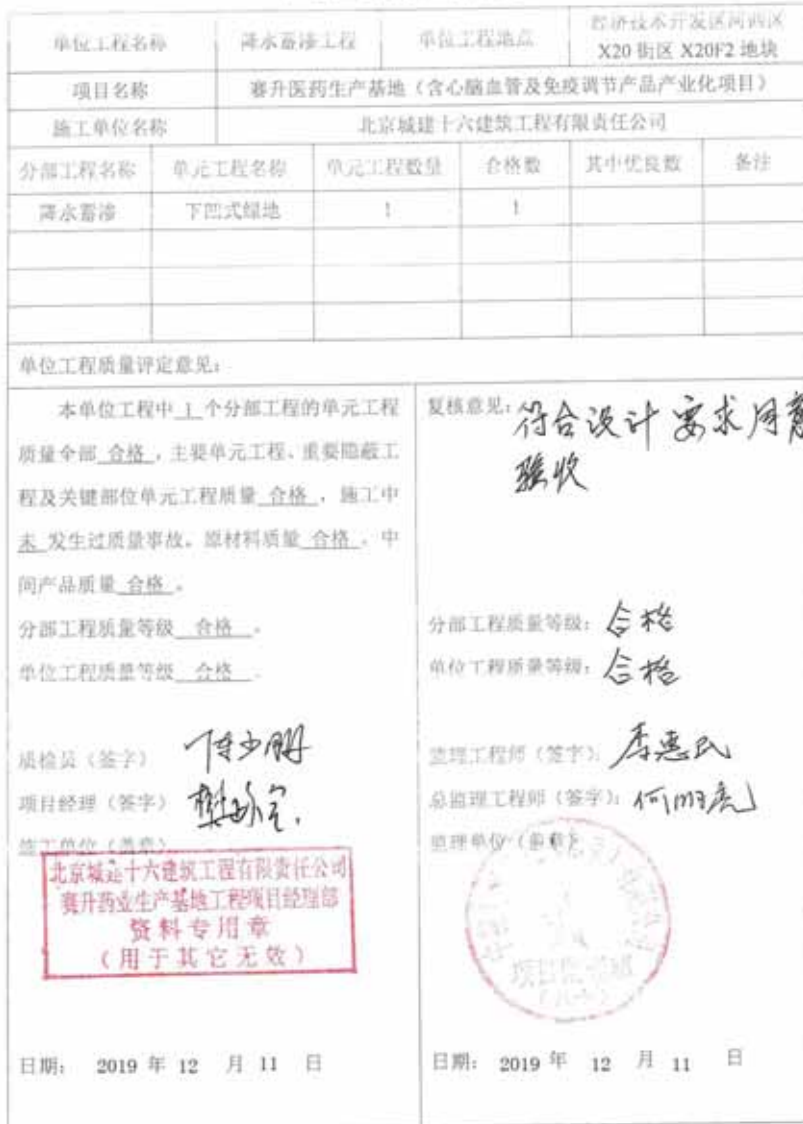 单位工程名称 降水蓄渗工程 单位工程地点 经济技术开发区河西区
X20 街区 X20F2 地块
项目名称 赛升医药生产基地（含心脑血管及免疫调节产品产业化项目）
施工单位名称 北京城建十六建筑工程有限责任公司
分部工程名称 单元工程名称 单元工程数量 合格数 其中优良数 备注
降水蓄渗 下凹式绿地 1 1
单位工程质量评定意见：
本单位工程中 1 个分部工程的单元工程
质量全部 合格 ，主要单元工程、重要隐蔽工
程及关键部位单元工程质量 合格 ，施工中
未 发生过质量事故。原材料质量 合格 。中
间产品质量 合格 。
分部工程质量等级 合格 。
单位工程质量等级 合格 。
质检员（签字）
项目经理（签字）
施工单位（盖章）
北京城建十六建筑工程有限责任公司
赛升药业生产基地工程项目经理部
资料专用章
（用于其它无效）
日期： 2019 年 12 月 11 日
复核意见：符合设计要求同意
验收
分部工程质量等级：合格
单位工程质量等级：合格
监理工程师（签字）：李惠民
总监理工程师（签字）：何明亮
监理单位（盖章）
日期： 2019 年 12 月 11 日